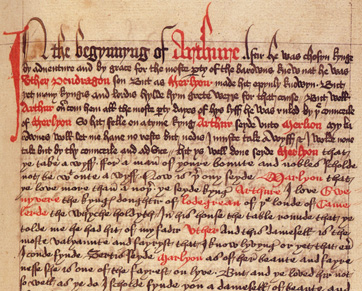 In the begynnyng of Arthure aftir he was chosyn kynge
by adventure and by grace for the moste party of the barowns knew nat he was
Uther Pendragon son But as Merlyon made hit opynly knowyn But
yet many kyngis and lordis hylde hym grete werre for that cause But well
Arthur ovircom hem all the moste party dayes of hys lyff he was ruled by the counceile
of Merlyon So hit felle on a tyme kyng Arthur seyde unto Merlion my
barownes woll let me have no reste but nedis I muste take a wyff & I wolde none
take but by thy counceile and advice Hit ys well done seyde Merlyon that
ye take a wyff for a man of youre bounte and nobles scholde
not be withoute a wyff Now is ther ony seyde Marlyon that
ye love more than a nothir ye seyde kyng Arthure I love Gwen
nyvere the kynges doughtir of lodegrean of the londe of Came
lerde the whyche holdyth in his house the table rounde that ye
tolde me he had hit of my fadir Uther And this damesell is the
moste valyaunte and fayryst that I know lyvyng or yet that ever I
coude fynde Sertis seyde Marlyon as of her beaute and fayre
nesse she is one of the fayrest on lyve But and ye loved hir not
so well as ye do I scholde fynde you a damesell of beaute and